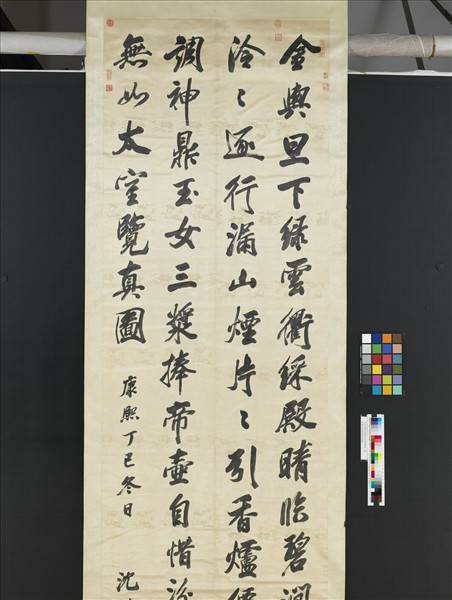 金輿旦下綠雲衢綵殿晴臨碧澗
泠〻逐行漏山煙片〻引香爐
調神鼎玉女三漿捧帝壺自惜汾
無如太室覽真圖
康熙丁巳冬日 沈